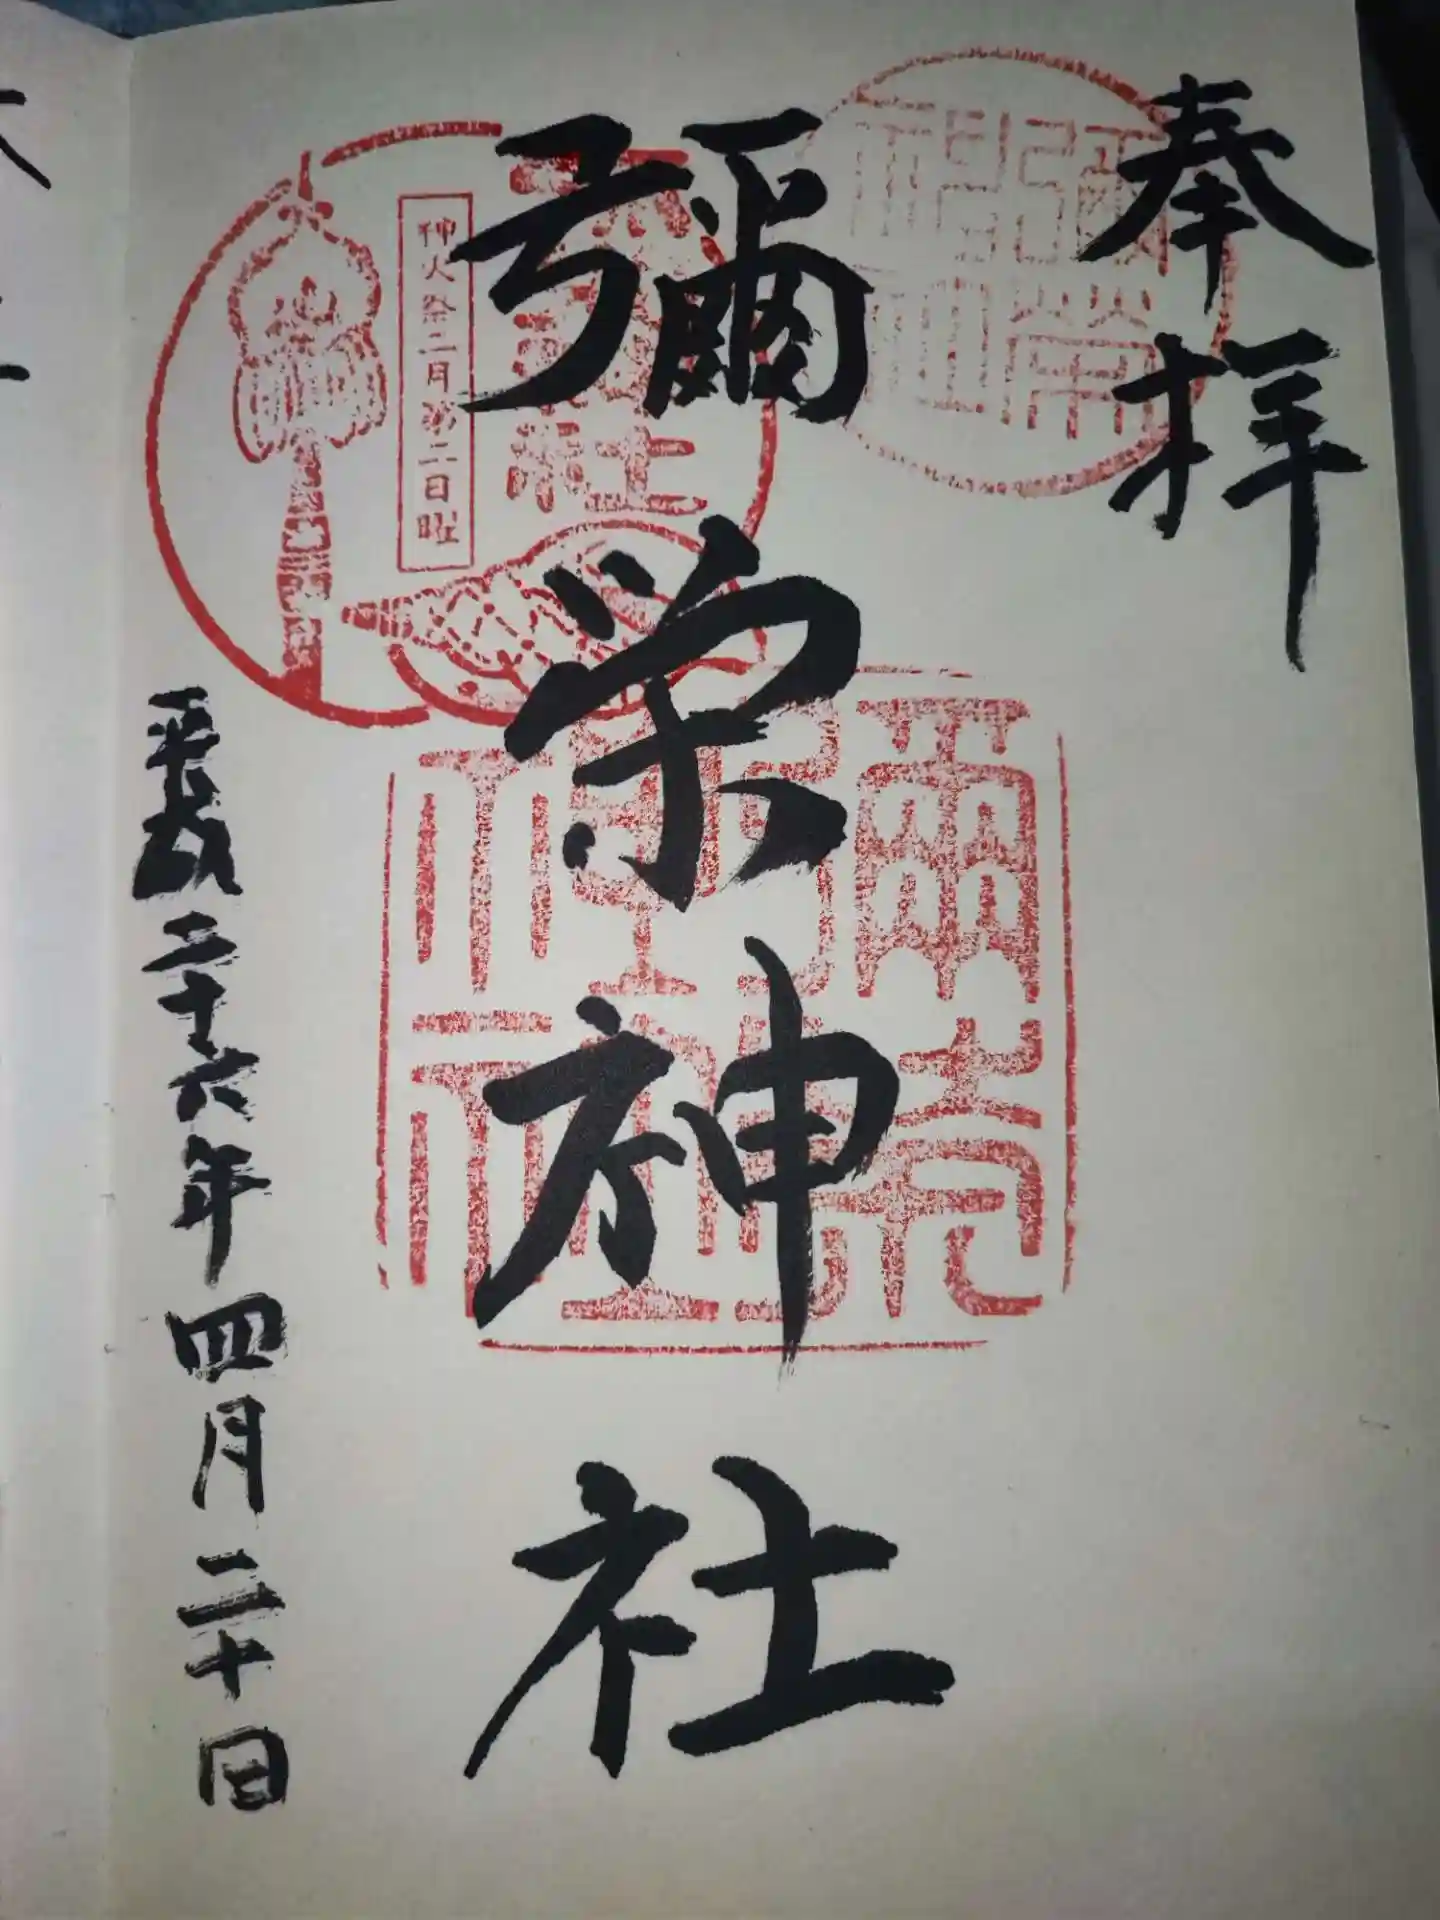 奉拝
彌栄神社
神火祭二月第二日曜
平成二十六年四月二十日